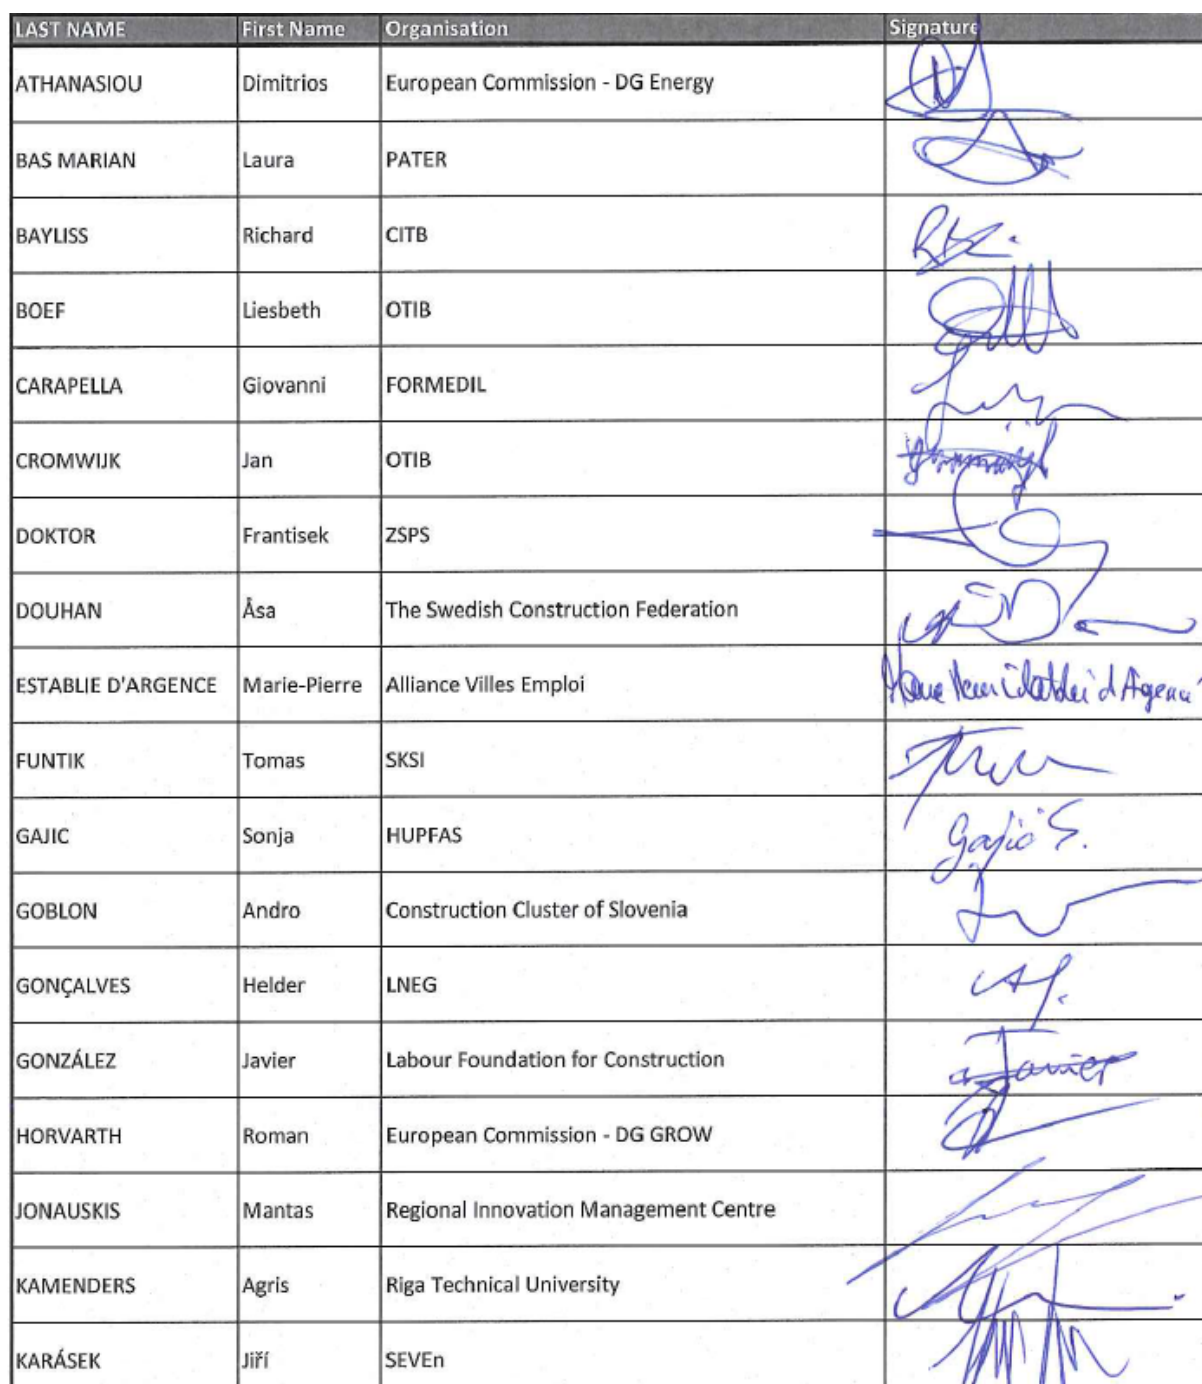 LAST NAME First Name Organisation Signature
ATHANASIOU Dimitrios European Commission - DG Energy
BAS MARIAN Laura PATER
BAYLISS Richard CITB
BOEF Liesbeth OTIB
CARAPELLA Giovanni FORMEDIL
CROMWIJK Jan OTIB
DOKTOR Frantisek ZSPS
DOUHAN Åsa The Swedish Construction Federation
ESTABLIE D'ARGENCE Marie-Pierre Alliance Villes Emploi
FUNTIK Tomas SKSI
GAJIC Sonja HUPFAS Gajić S.
GOBLON Andro Construction Cluster of Slovenia
GONÇALVES Helder LNEG
GONZÁLEZ Javier Labour Foundation for Construction Javier
HORVARTH Roman European Commission - DG GROW
JONAUSKIS Mantas Regional Innovation Management Centre
KAMENDERS Agris Riga Technical University
KARÁSEK Jiří SEVEn